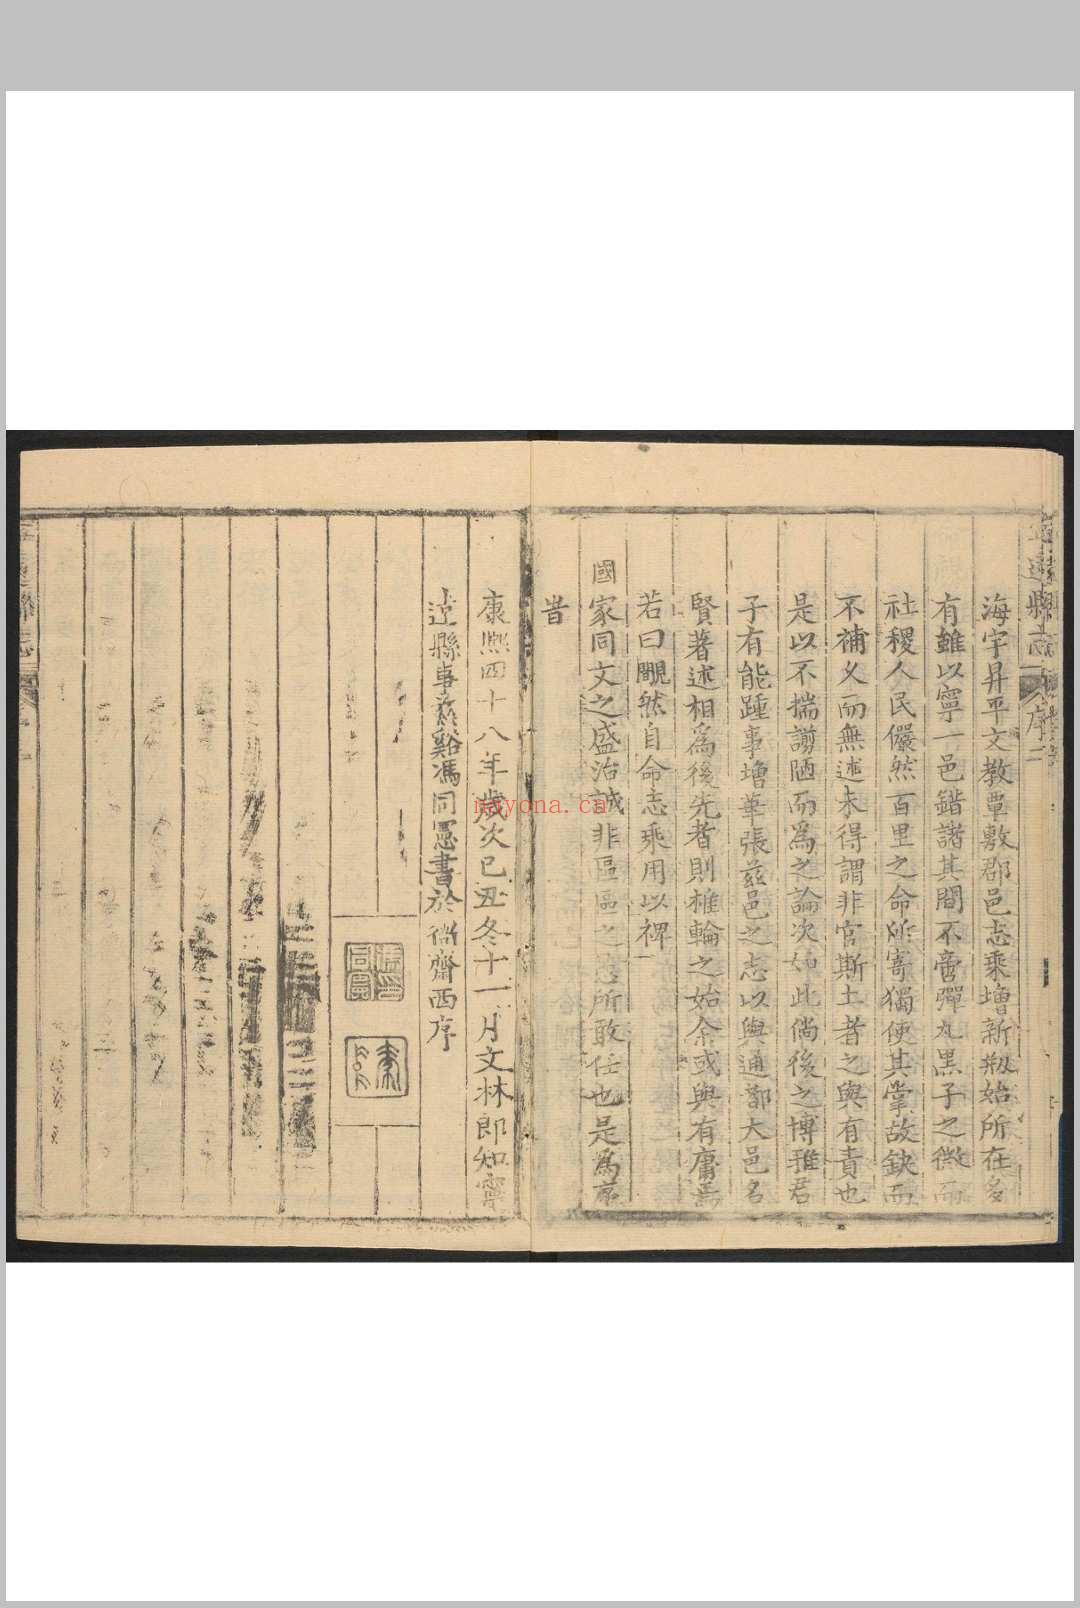 海宇昇平文教覃敷郡邑志乘增新剏始所在多
有雖以寧一邑錯諧其間不啻彈丸黑子之微而
社稷人民儼然百里之命所寄獨使其掌故缺而
不補文而無述未得謂非官斯土者之與有責也
是以不揣謭陋而為之論次如此倘後之博雅君
子有能踵事增華張茲邑之志以與通都大邑名
賢著述相為後先者則椎輪之始余或與有庸焉
若曰覼然自命志乘用以裨
國家同文之盛治誠非區區之所敢任也是為序
旹
康熙四十八年歲次己丑冬十一月文林郎知寧
遠縣事慈谿馮同憲書於衙齋西序
nayona.cn